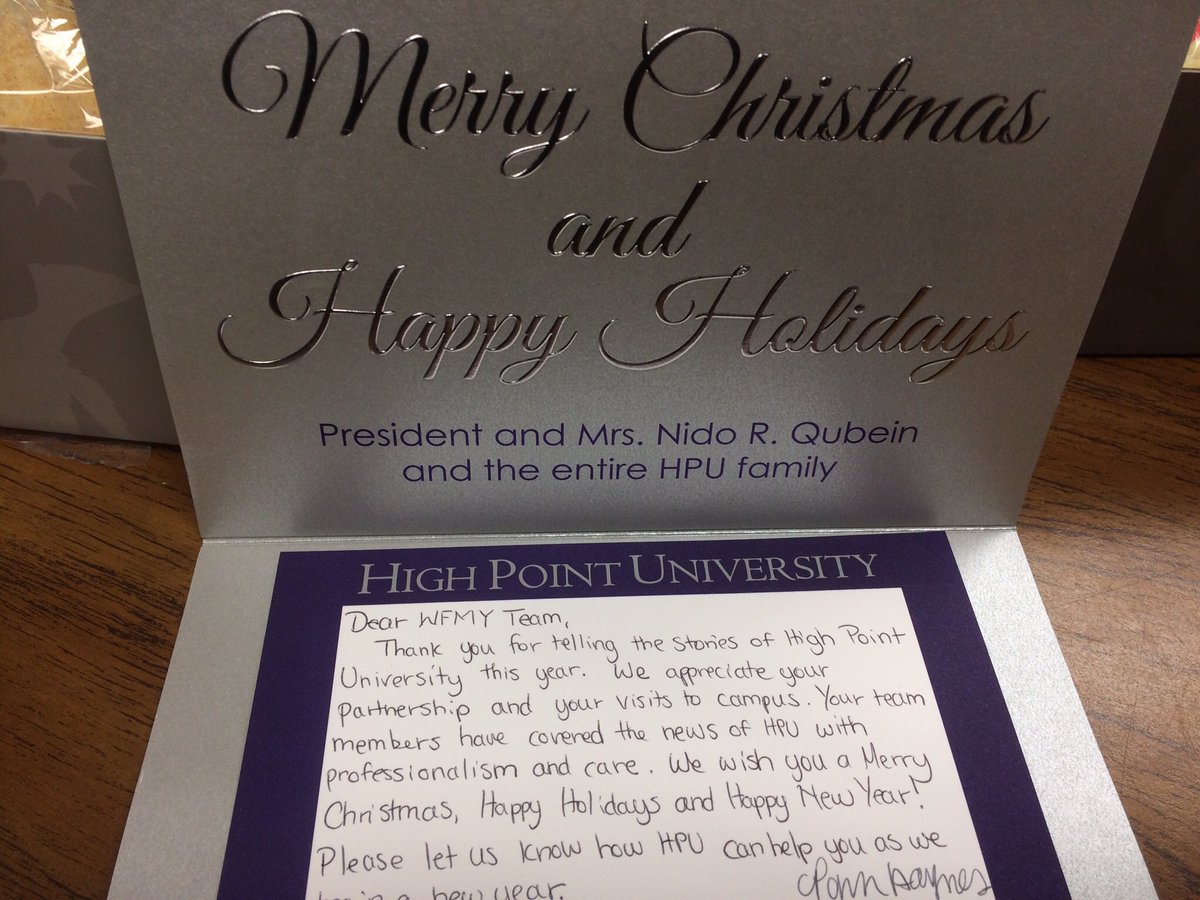 Merry Christmas
and
Happy Holidays
President and Mrs. Nido R. Qubein
and the entire HPU family
HIGH POINT UNIVERSITY
Dear WFMY Team,
Thank you for telling the stories of High Point
University this year. We appreciate your
partnership and your visits to campus. Your team
members have covered the news of HPU with
professionalism and care. We wish you a Merry
Christmas, Happy Holidays and Happy New Year!
Please let us know how HPU can help you as we
a new year.
Haynes